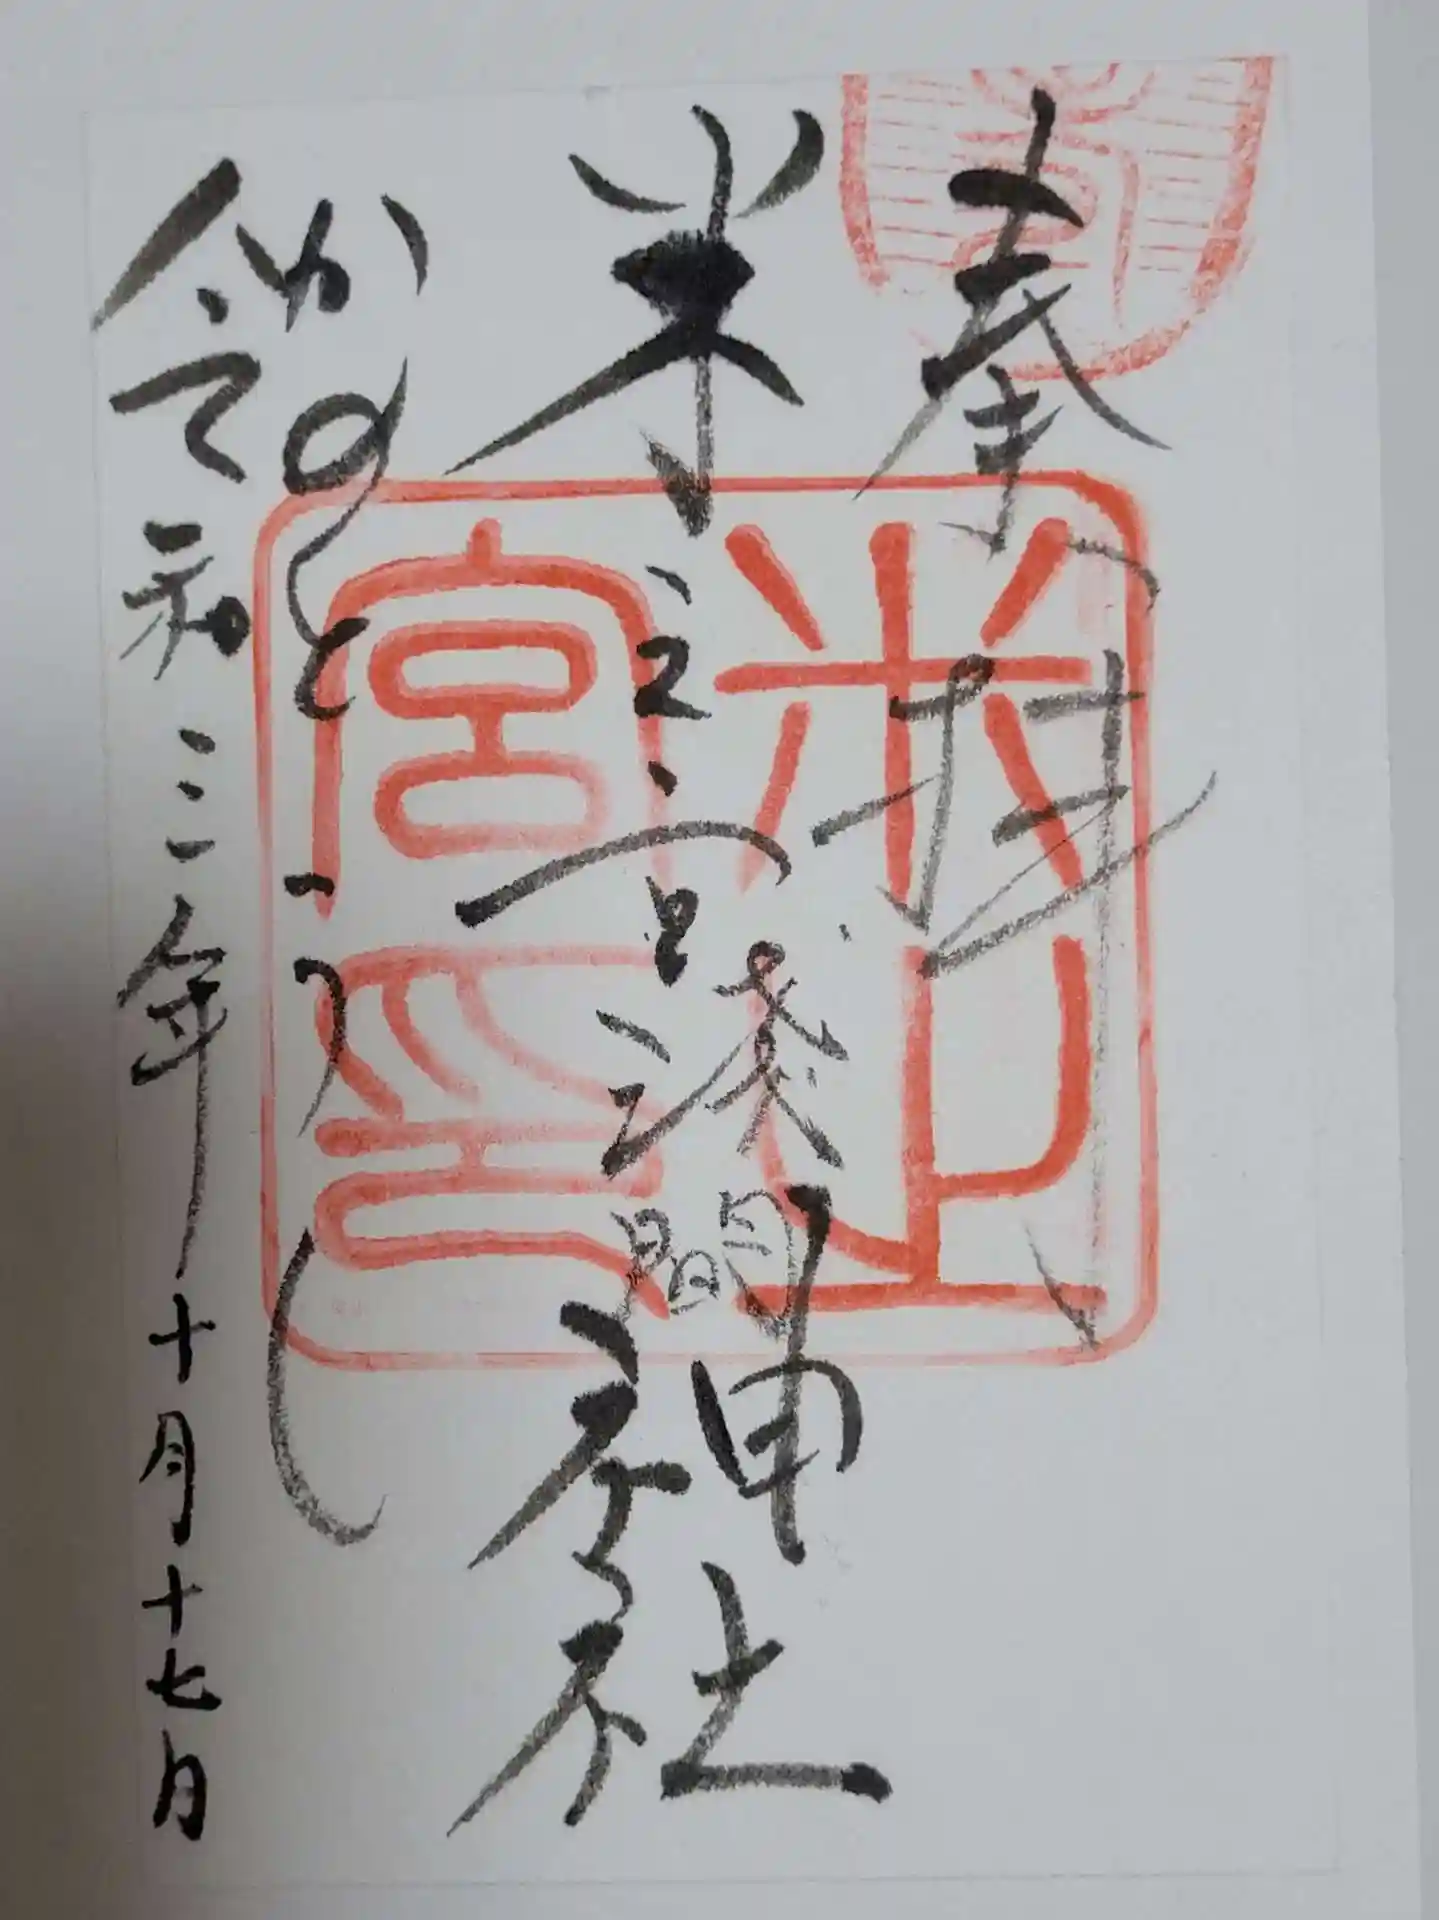 奉拝
米之宮浅間神社
かのとうし
令和三年十月十七日
米之
宮印